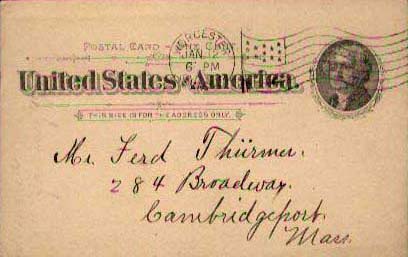 POSTAL CARD - ONE CENT.
WORCESTER
JAN 12
6 PM
United States of America.
THIS SIDE IS FOR THE ADDRESS ONLY.
Mr. Ferd Thürmer.
284 Broadway.
Cambridgeport.
Mass.